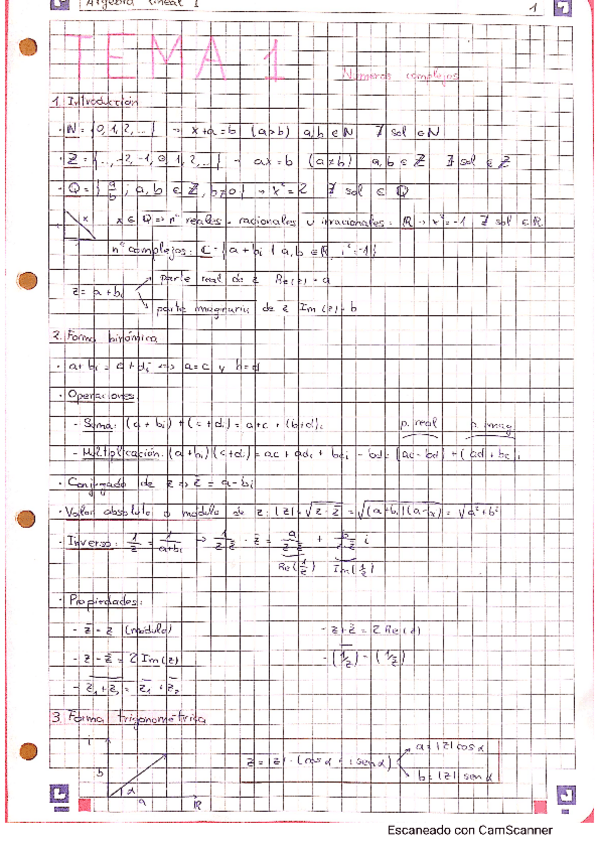 Algebra lineal I
1
TEMA 1
Números complejos
1. Introducción
· N = {0, 1, 2, ...} → x+a=b (a>b) a,b ∈ N ∄ sol ∈ N
· Z = {..., -2, -1, 0, 1, 2, ...} → ax=b (a≠b) a,b ∈ Z ∄ sol ∈ Z
· Q = {a/b ; a, b ∈ Z, b≠0} → x²=2 ∄ sol ∈ Q
x x ∈ Q ⇒ nº reales = racionales u irracionales: R → x²=-1 ∄ sol ∈ R
nº complejos: C = {a + bi | a,b ∈ R, i²=-1}
z = a + bi
parte real de z Re(z) = a
parte imaginaria de z Im(z) = b
2. Forma binómica
· a+bi = c+di ⇔ a=c y b=d
· Operaciones:
- Suma: (a + bi) + (c+di) = a+c + (b+d)i
p. real p. imag
- Multiplicación: (a+bi)(c+di) = ac + adi + bci - bd = (ac-bd) + (ad+bc)i
· Conjugado de z ⇒ z̄ = a-bi
· Valor absoluto o módulo de z: |z| = √z·z̄ = √(a+bi)(a-bi) = √a²+b²
· Inverso: 1/z = 1/a+bi → 1/z z̄ · z̄ = a/z z̄ + b/z z̄ i
Re(1/z) Im(1/z)
· Propiedades:
- z̄ = z (módulo)
- z+z̄ = 2 Re(z)
- z-z̄ = 2 Im(z)
- (1/z) = (1/z̄)
- z₁+z₂ = z̄₁ + z̄₂
3. Forma trigonométrica
i
b
α
a
R
z = |z| · (cos α + i sen α)
a = |z| cos α
b = |z| sin α
Escaneado con CamScanner